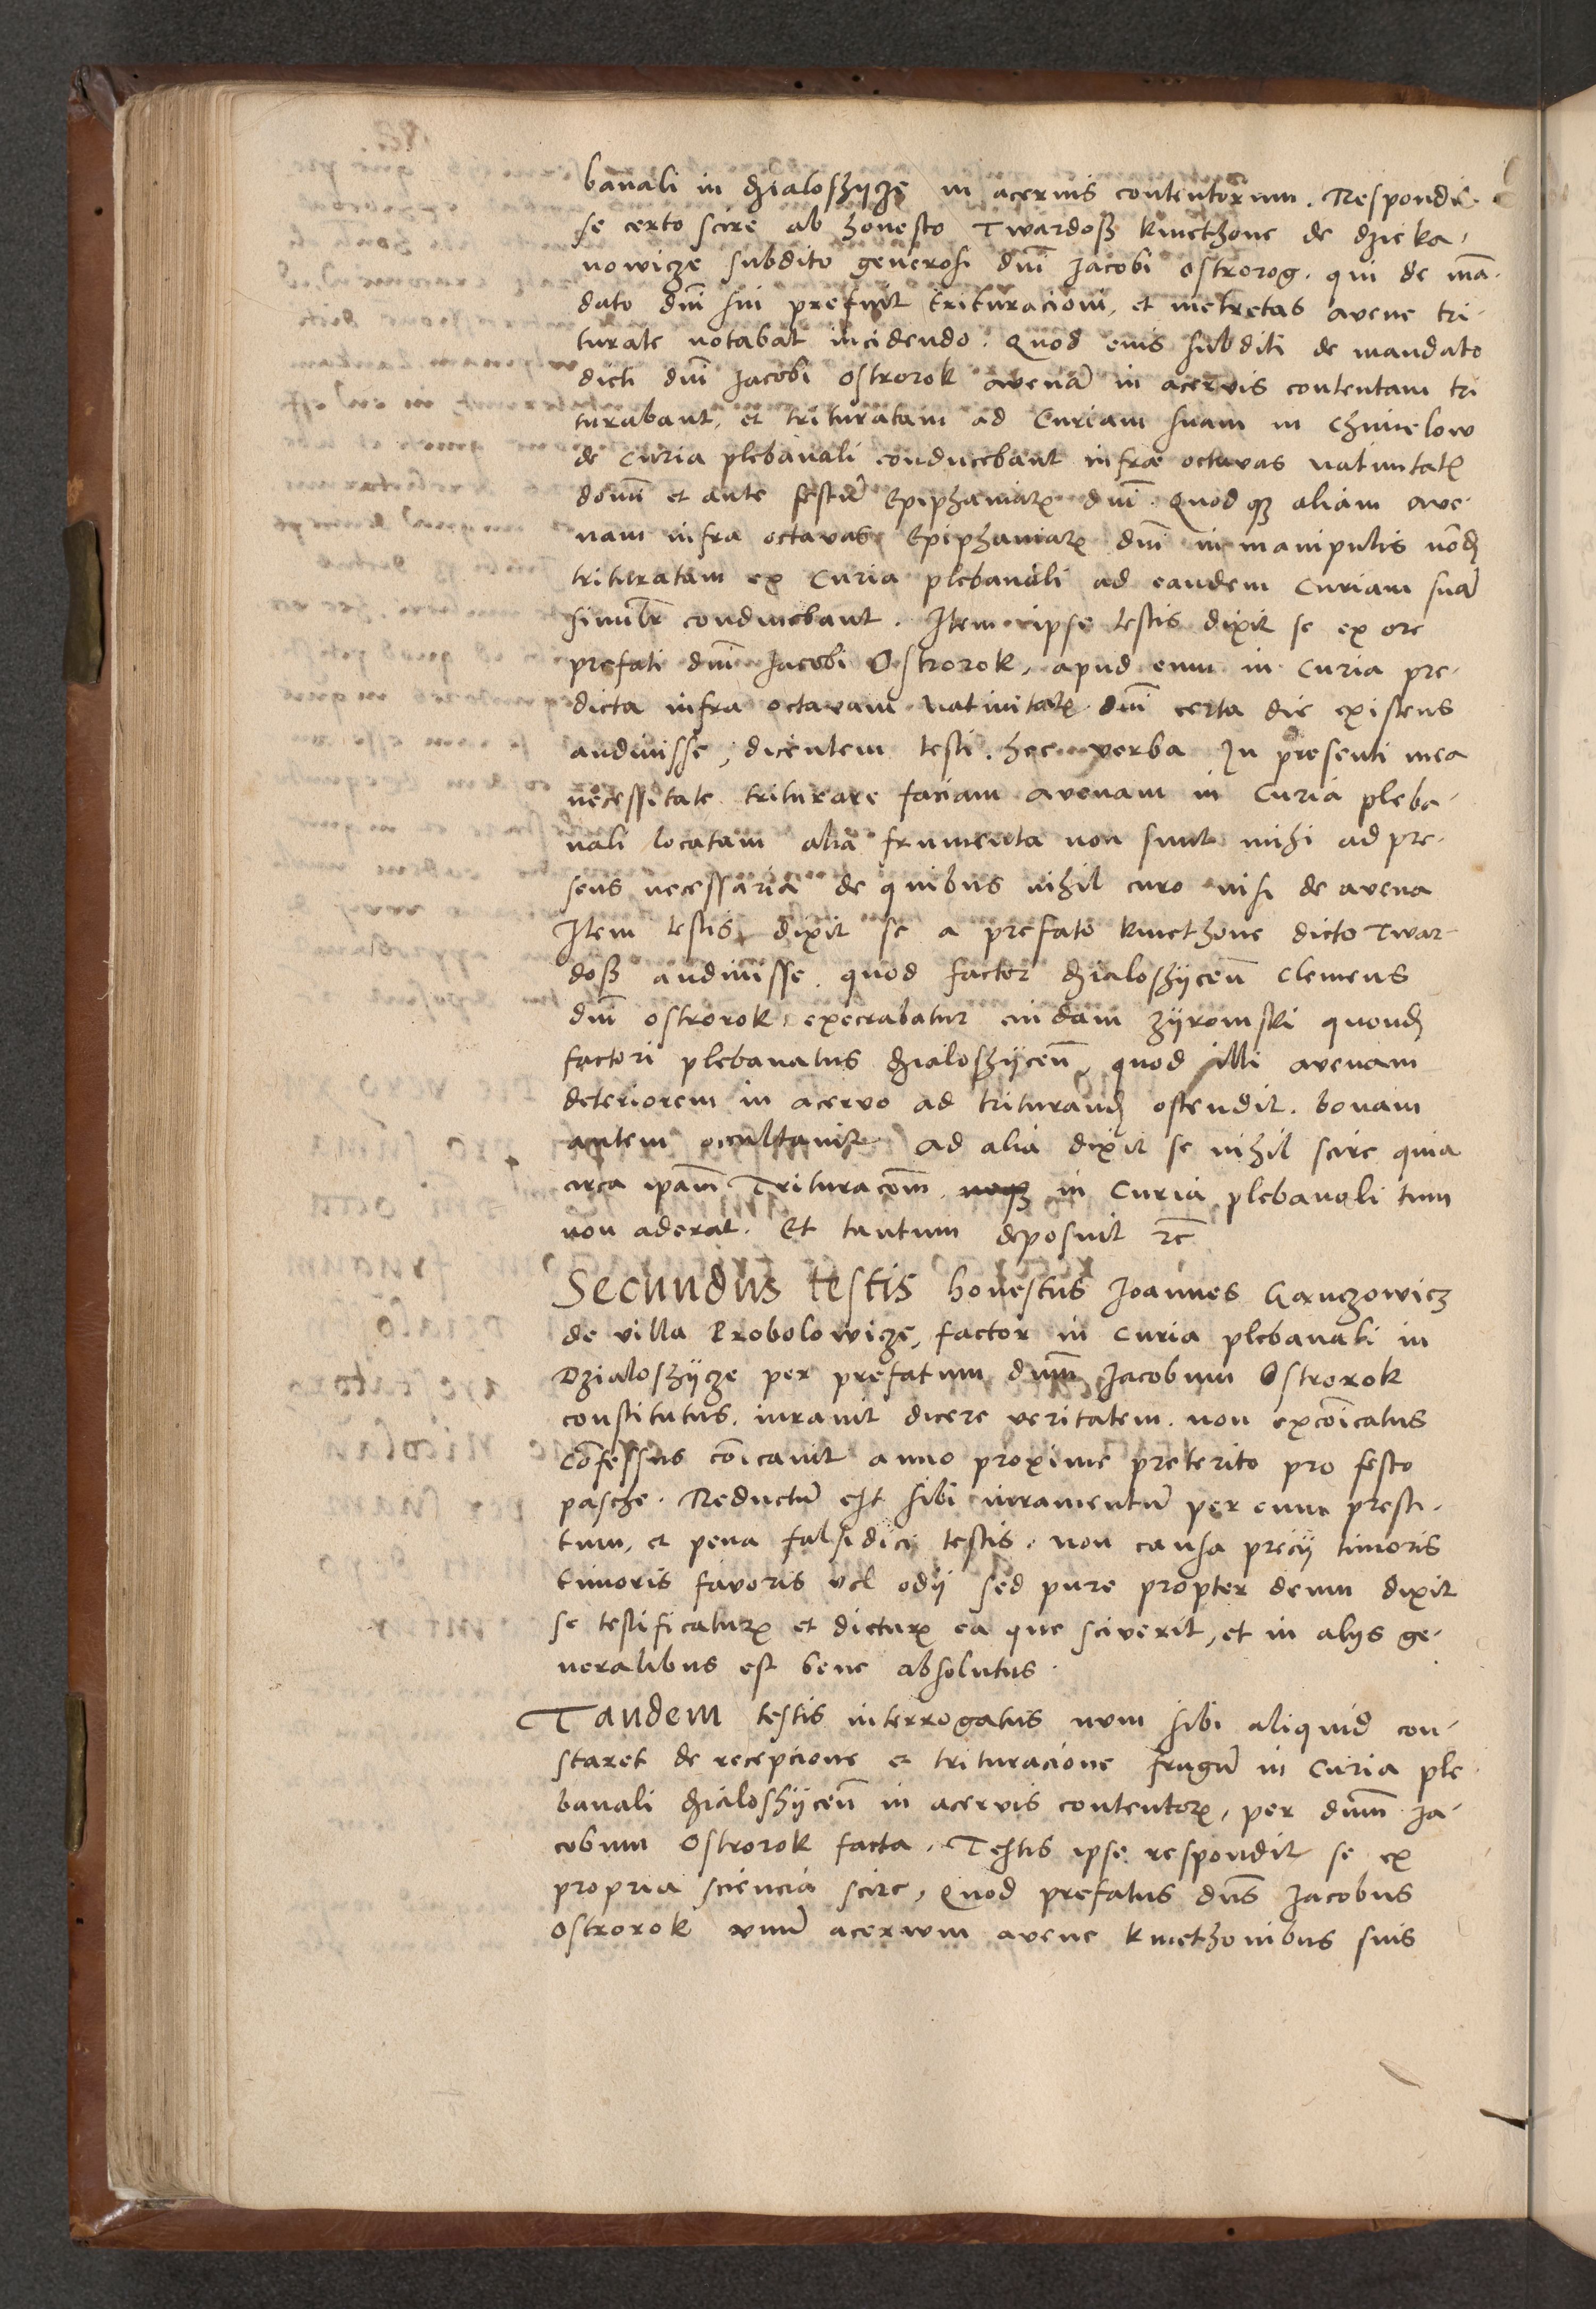 banali in dzialoschycze in acervis contentorum. Respondit
se certo scire ab honesto Twardosz kmethone de dzieka-
nowicze subdito generosi dni Jacobi Ostrorog. qui de ma-
dato dni sui prefuit trituracioni, et metretas avene tri-
turate notabat incidendo. Quod eius subditi de mandato
dicti dni Jacobi Ostrorok avena in acervis contentam tri
turabant, et trituratam ad Curiam suam in Chmielow
de Curia plebanali conducebant infra octavas nativitatis
domi et ante festu Epiphaniarum dni. Quod aliam ave-
nam infra octavas Epiphaniarum dni in manipulis nond
trituratam ex Curia plebanali ad eandem Curiam sua
similr conducebant. Item ipse testis dixit se ex ore
prefati dni Jacobi Ostrorok, apud eum in Curia pre-
dicta infra octavam nativitatis dni certa die existens
audivisse, dicentem testi. hec verba In presenti mea
necessitate triturare faciam avenam in Curia pleba-
nali locatam alia frumenta non sunt mihi ad pre-
sens necessaria de quibus nihil curo nisi de avena
Item testis dixit se a prefato kmethone dicto Twar-
dosz audivisse. quod factor dzialoschycen Clemens
dni Ostrorok execrabatur cuidam zyromski quond
factori plebanatus dzialoschycen, quod illi avenam
deteriorem in acervo ad triturand ostendit. bonam
autem occultavit. Ad alia dixit se nihil scire quia
circa ipam Trituracom in Curia plebanali tum
non aderat. Et tantum deposuit rc
Secundus testis honestus Joannes Ganczowicz
de villa Probolowicze, factor in Curia plebanali in
Dzialoschycze per prefatum dnm Jacobum Ostrorok
constitutus. iuravit dicere veritatem. non excoicatus
Cofessus coicavit anno proxime preterito pro festo
pasche. Reductu est sibi iuramentu per eum presti-
tum, et pena falsidici testis. non causa precij timoris
timoris favoris vel odij sed pure propter deum dixit
se testificaturum et dicturum ea que sciverit, et in alijs ge-
neralibus est bene absolutus.
Tandem testis interrogatus num sibi aliquid con-
staret de recepcione et trituracione frugu in Curia ple-
banali dzialoschycen in acervis contentorum, per dnm Ja-
cobum Ostrorok facta. Testis ipse respondit se ex
propria sciencia scire, Quod prefatus dns Jacobus
Ostrorok unu acervum avene kmethonibus suis